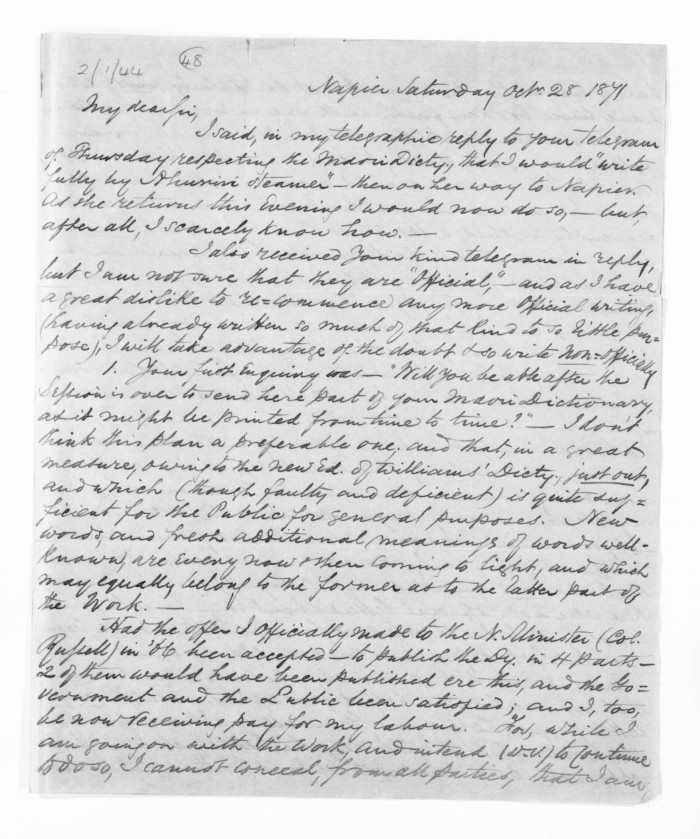 2/1/44 48
Napier Saturday Octr. 28 1871
My dear Sir,
I said, in my telegraphic reply to your Telegram
of Thursday respecting the Maori Dicty., that I would "write
fully by Ahuriri Steamer" – then on her way to Napier.
As she returns this Evening I would now do so, – but,
after all, I scarcely know how. –
I also received your kind telegram in reply,
but I am not sure that they are "Official," – and as I have
a great dislike to re-commence any more Official writing,
(having already written so much of that kind to so little pur=
pose), I will take advantage of the doubt & so write Non-officially
1. Your first Enquiry was – "Will you be able after the
Session is over to send here part of your Maori Dictionary,
as it might be printed from time to time?" – I don't
think this plan a preferable one; and that, in a great
measure, owing to the new Ed. of Williams' Dicty., just out,
and which (though faulty and deficient) is quite suf=
ficient for the Public for general purposes. New
words, and fresh additional meanings of words well-
known, are every now & then coming to light, and which
may equally belong to the former as to the latter part of
the Work. –
Had the offer I Officially made to the N. Minister (Col.
Russell) in '66 been accepted – to publish the Dy. in 4 parts –
2 of them would have been published ere this, and the Go=
vernment and the Public been satisfied; and I, too,
be now receiving pay for my labour. For, while I
am going on with the Work, and intend (D.V.) to continue
to do so, I cannot conceal, from all parties, that I am,